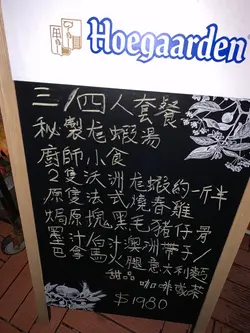 Hoegaarden
三/四人套餐
秘製尨蝦湯
廚師小食
2隻沃洲尨蝦約一斤半
原隻法式燒春雞
焗原塊黑毛豬仔骨
墨汁白汁澳洲帶子/
巴拿馬火腿意大利麵
甜品 咖啡或茶
$1980